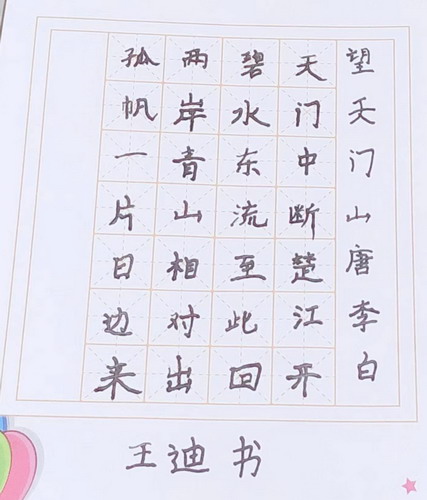 望天门山唐李白
天门中断楚江开
碧水东流至此回
两岸青山相对出
孤帆一片日边来
王迪书